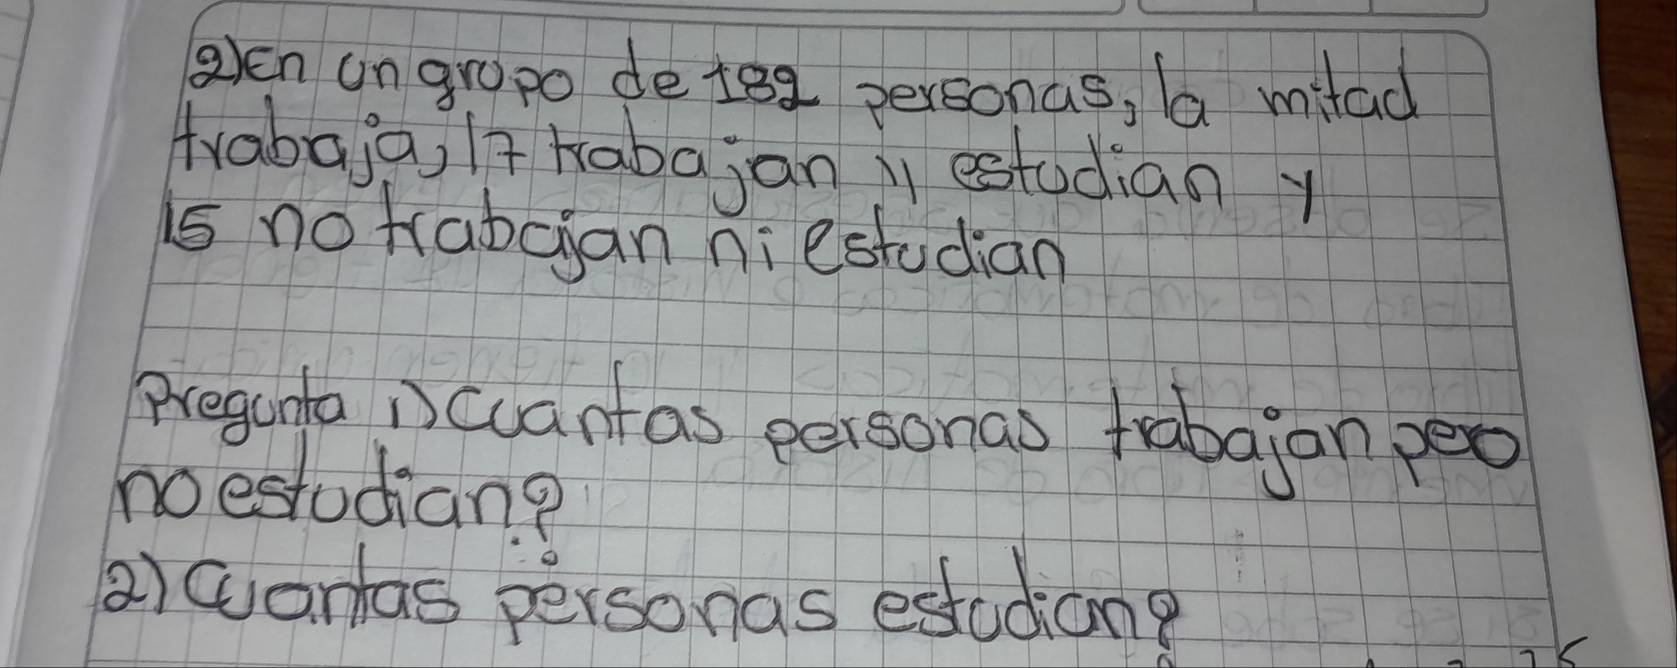 2)En un grupo de 182 personas, la mitad
trabaja, 17 trabajan y estudian y
15 no trabajan ni estudian
Pregunta 1) Cuantas personas trabajan pero
no estudian?
2) Cuantas personas estudian?